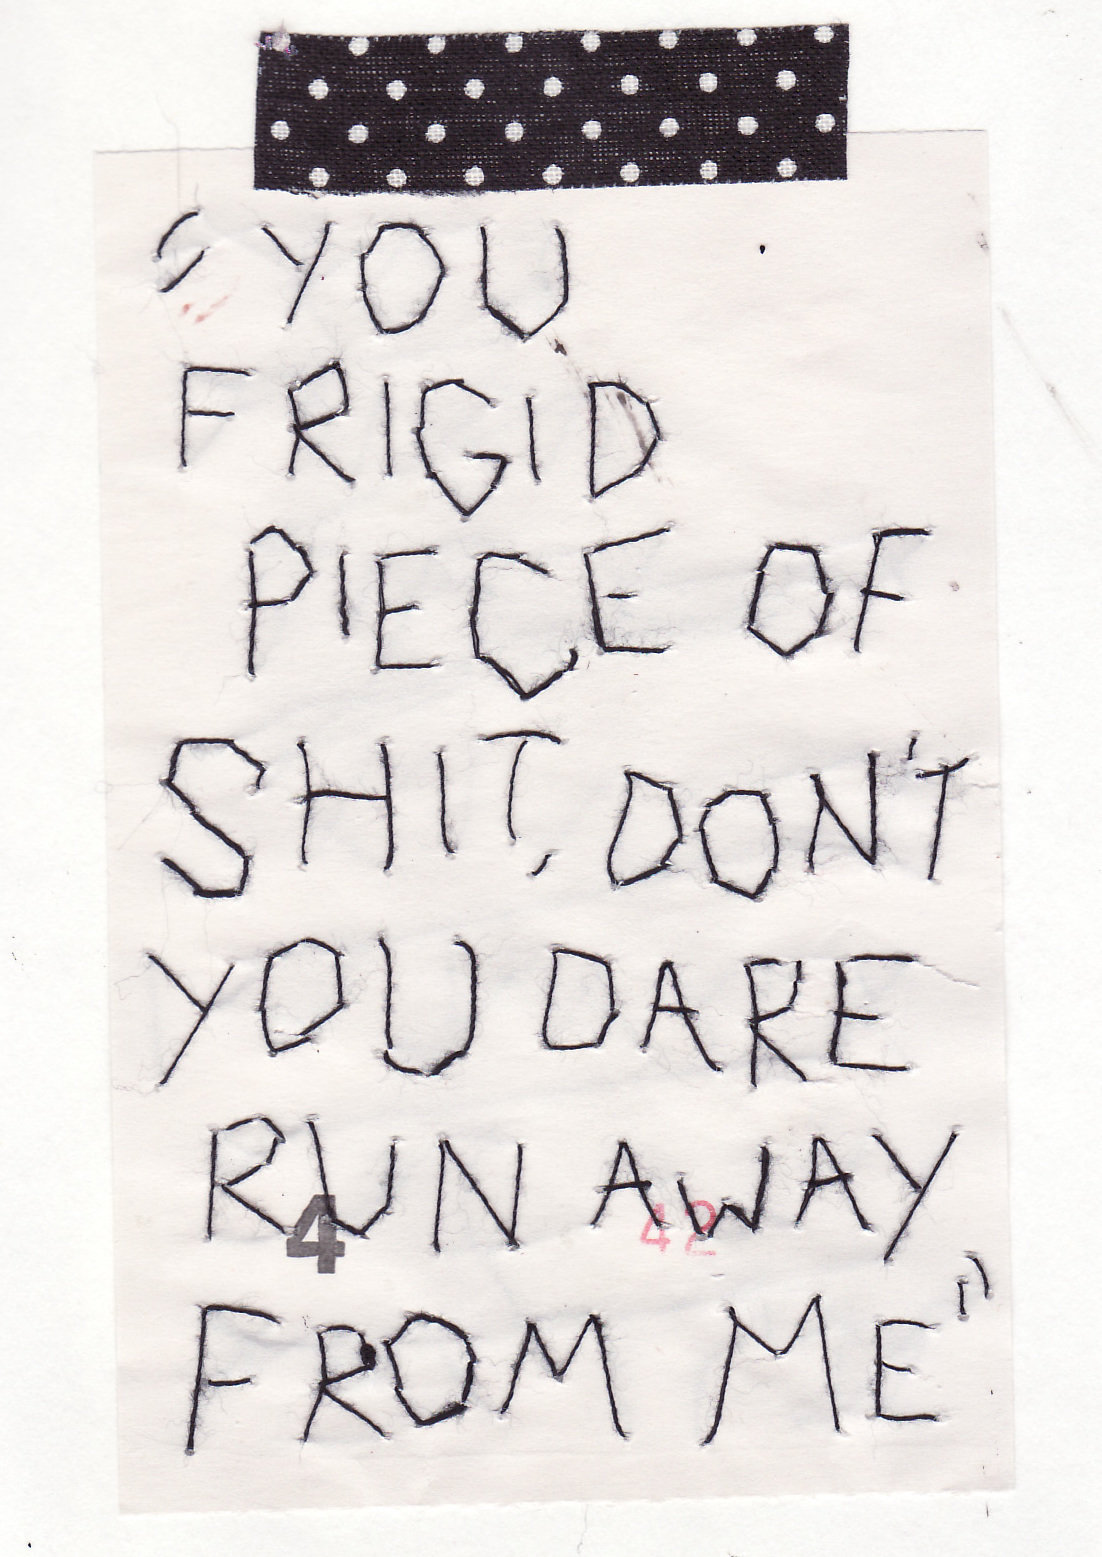 "YOU
FRIGID
PIECE OF
SHIT, DON'T
YOU DARE
RUN AWAY
4 42
FROM ME"